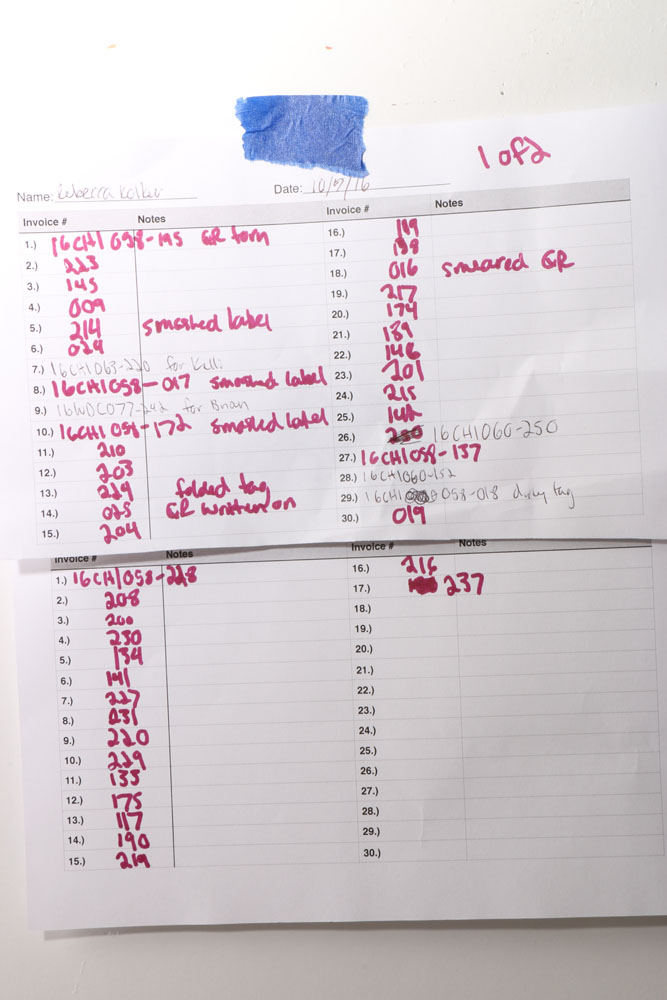 1 of 2
Name: Rebecca Date: 10/7/16
Invoice # Notes
1.) 16CH1058-195 QR torn
2.) 223
3.) 145
4.) 009
5.) 214 smashed label
6.) 024
7.) 16CH1063-220 for Kelli
8.) 16CH1058-017 smashed label
9.) 16WDC077-242 for Brian
10.) 16CH1058-172 smashed label
11.) 210
12.) 203
13.) 229 folded tag
14.) 025 QR written on
15.) 204
Invoice # Notes
16.) 199
17.) 138
18.) 016 smeared QR
19.) 217
20.) 174
21.) 139
22.) 146
23.) 201
24.) 215
25.) 142
26.) 16CH1060-250
27.) 16CH1058-137
28.) 16CH1060-152
29.) 16CH1 058-018 dirty tag
30.) 019
Invoice # Notes
1.) 16CH1058-228
2.) 208
3.) 200
4.) 230
5.) 134
6.) 141
7.) 227
8.) 231
9.) 220
10.) 229
11.) 133
12.) 175
13.) 117
14.) 190
15.) 219
Invoice # Notes
16.) 216
17.) 237
18.)
19.)
20.)
21.)
22.)
23.)
24.)
25.)
26.)
27.)
28.)
29.)
30.)